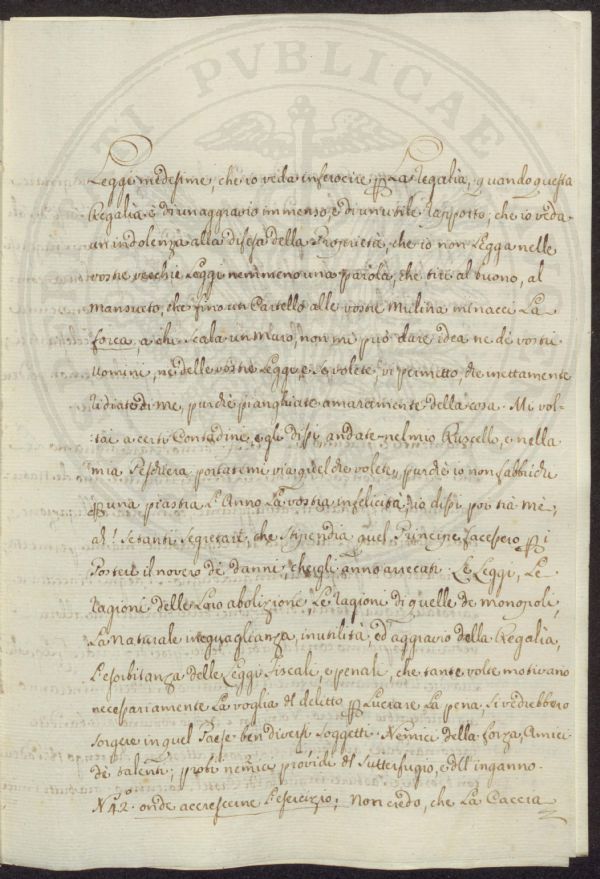 PVBLICAE
Leggi medesime, che io veda inferocire p La Regalia, quando questa
Regalia è di un aggravio immenso, e di un utile rapporto, che io veda
un indolenza alla difesa della Proprietà, che io non Legga nelle
vostre vecchie Leggi nemmeno una parola, che tiri al buono, al
mansueto, che fino un Cartello alle vostre mulina minacci La
forca, a chi scala un muro, non mi può dare idea ne de vostri
Uomini, ne delle vostre Leggi, e se volete, vi permetto, che mettamente
ridiate di me, purchè pianghiate amaramente della cosa. Mi vol-
tai a certi Contadini, e gli dissi, andate nel mio Ruscello, e nella
mia Peschiera, portatemi via quel che volete, purchè io non fabbriche
p una piastra L'Anno La vostra infelicità, io dissi poi trà mè,
ah! Se tanti Segretari, che stipendia quel Principe facessero p i
Posteri il novero dè danni, che gli anno arrecati Le Leggi, Le
ragioni delle Loro abolizione, Le ragioni di quelle de monopoli,
La Naturale ineguaglianza, inutilità, ed aggravio della Regalia,
L'esorbitanza delle Leggi Fiscali, e penali, che tante volte motivano
necessariamente La voglia del delitto p Lucrare La pena, si vedrebbero
sorgere in quel Paese ben diversi soggetti Nemici della forza, Amici
dè talenti, probi nemici providi del sutterfugio, e dell'inganno.
N. 42.° onde accrescerne L'esercizio; Non credo, che La Caccia